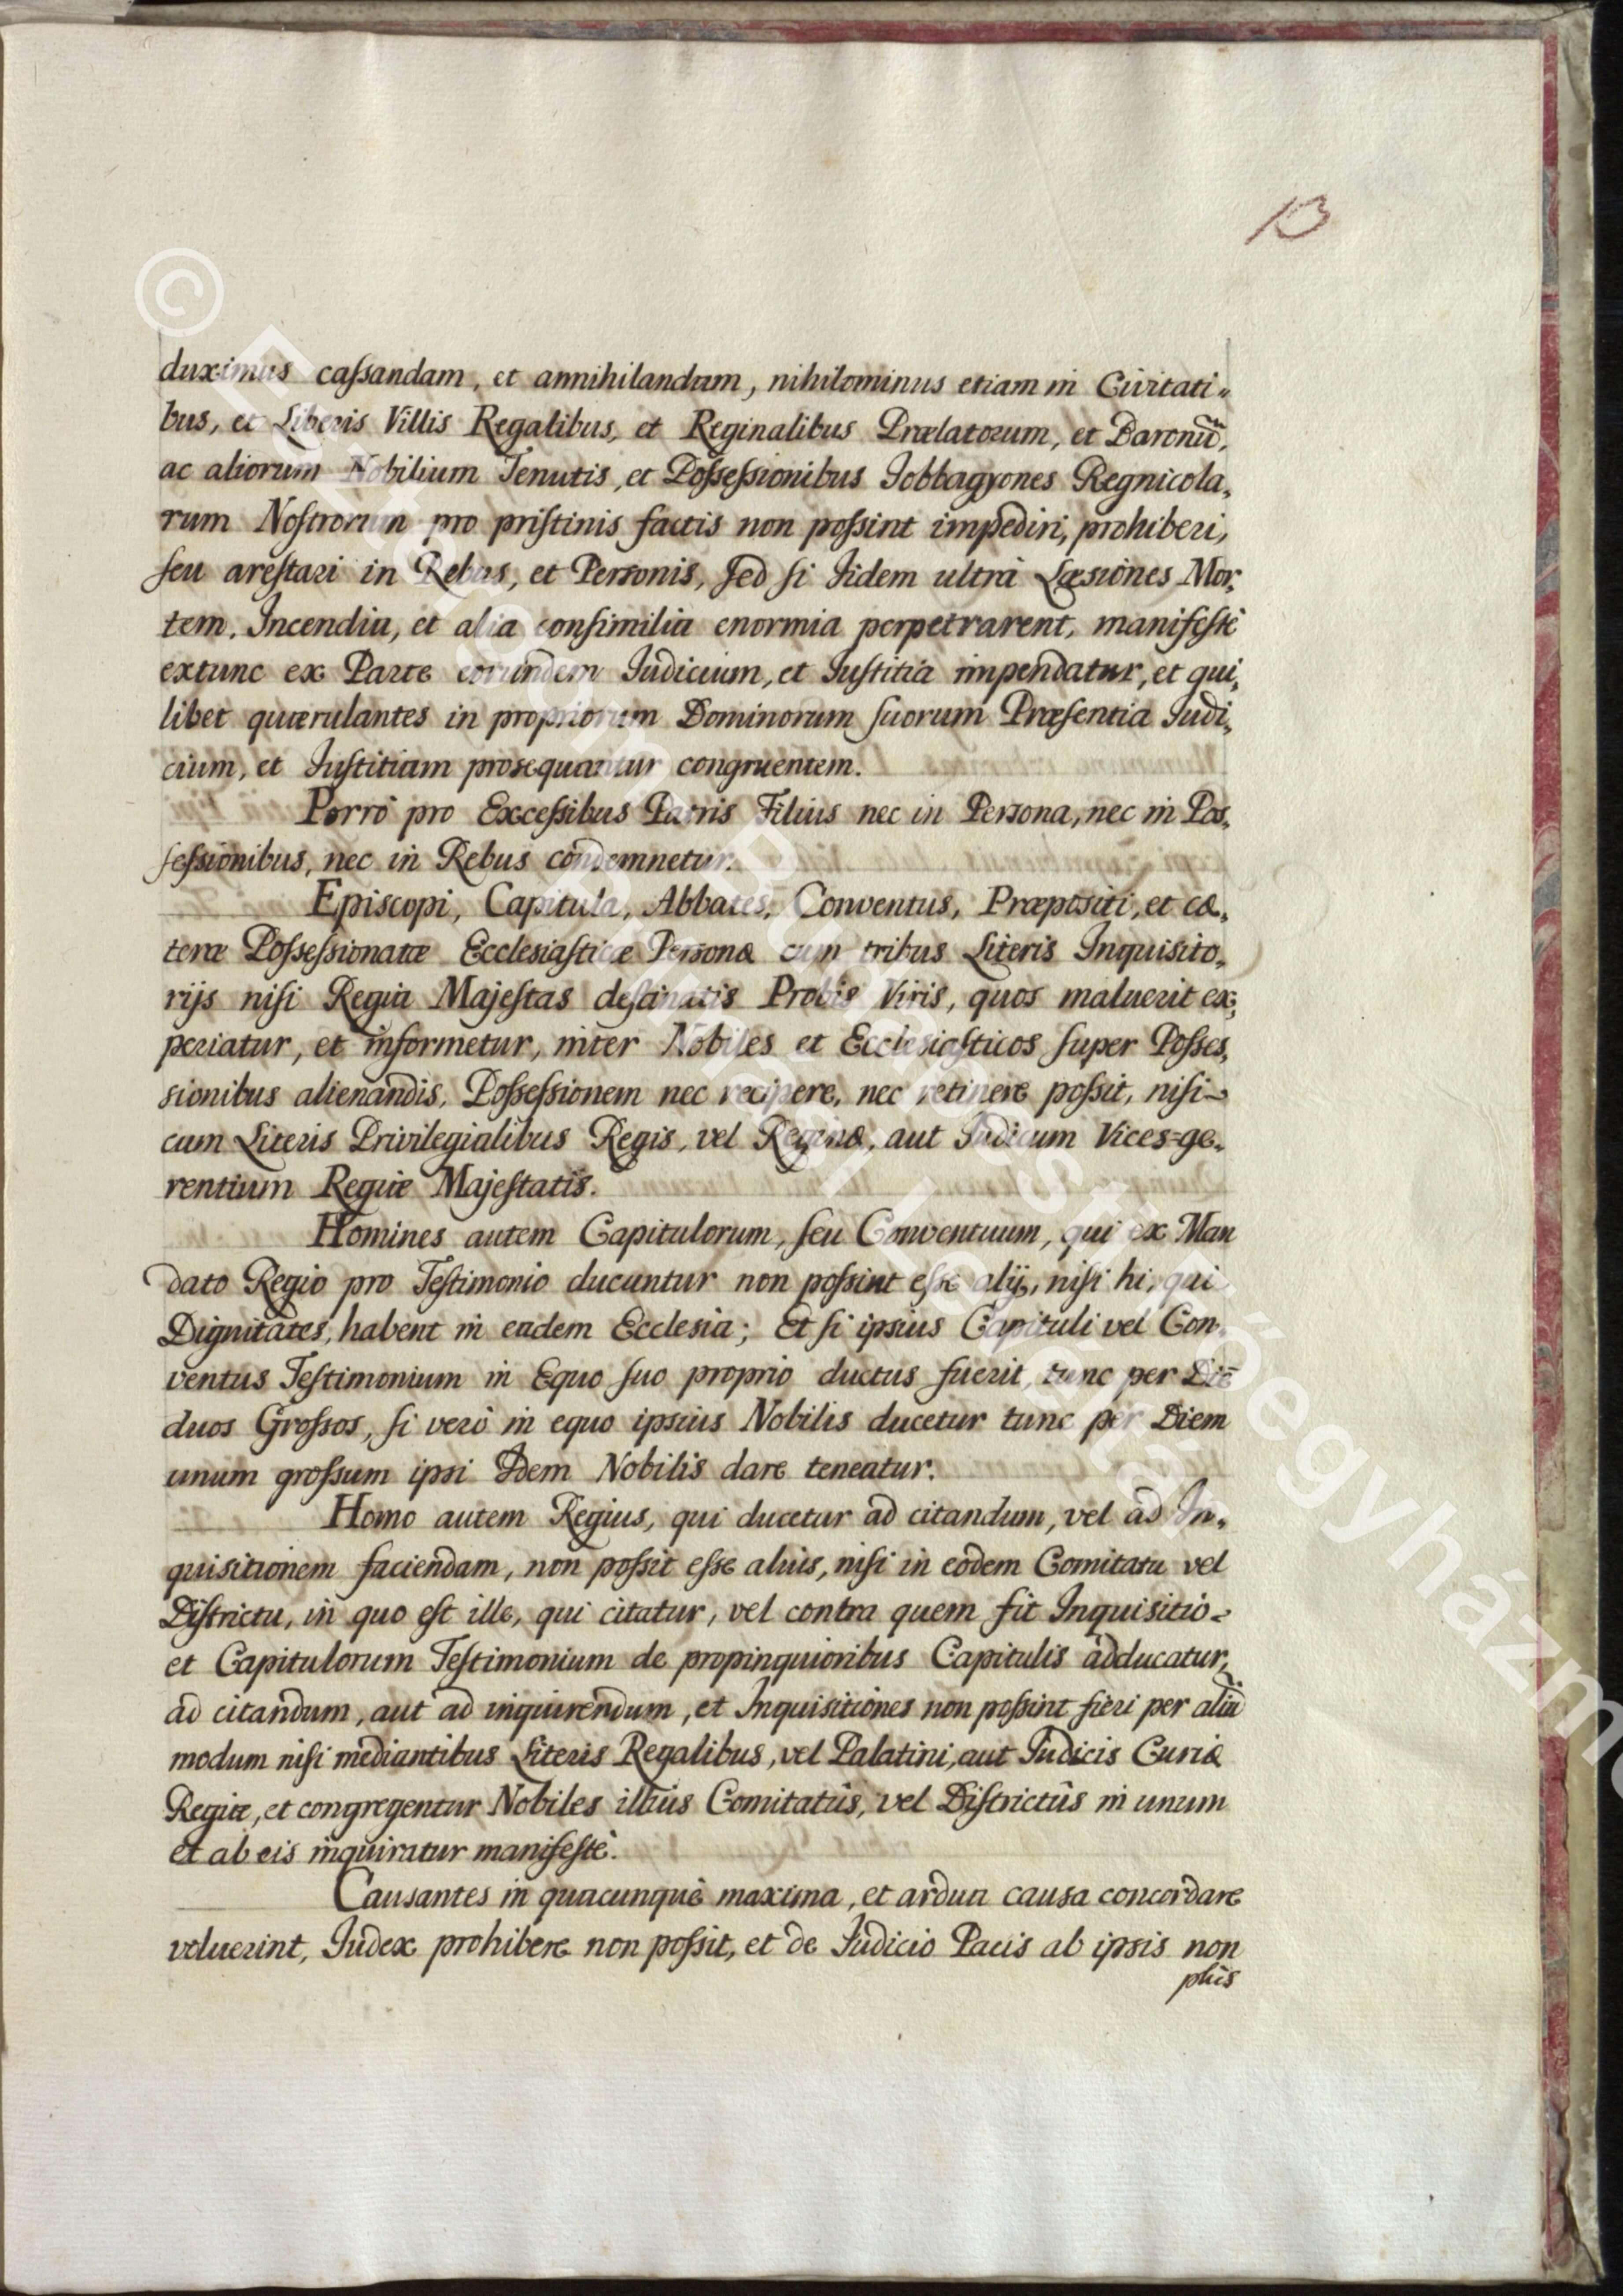 13
duximus cassandam, et annihilandam, nihilominus etiam in Civitati„
bus, et Liberis Villis Regalibus, et Reginalibus Prælatorum, et Baronũ,
ac aliorum Nobilium Tenutis, et Possessionibus Jobbagyones Regnicola„
rum Nostrorum pro pristinis factis non possint impediri, prohiberi,
seu arestari in Rebus, et Personis, sed si Iidem ultrà Læsiones Mor„
tem, Incendia, et alia consimilia enormia perpetrarent, manifestè
extunc ex Parte eorundem Judicium, et Justitia impendatur, et qui„
libet quærulantes in propriorum Dominorum suorum Præsentia Judi„
cium, et Justitiam prosequantur congruentem.
Porrò pro Excessibus Patris Filius nec in Persona, nec in Pos„
sessionibus, nec in Rebus condemnetur.
Episcopi, Capitula, Abbates, Conventus, Præpositi, et cæ„
teræ Possessionatæ Ecclesiasticæ Personæ cum tribus Literis Inquisito„
rijs nisi Regia Majestas destinatis Probis Viris, quos maluerit ex„
periatur, et informetur, inter Nobiles et Ecclesiasticos super Posses„
sionibus alienandis, Possessionem nec recipere, nec retinere possit, nisi
cum Literis Privilegialibus Regis, vel Reginæ, aut Judicum Vices=ge„
rentium Regiæ Majestatis.
Homines autem Capitulorum, seu Conventuum, qui ex Man
dato Regio pro Testimonio ducuntur non possint esse alij, nisi hi, qui
Dignitates, habent in eadem Ecclesia; Et si ipsius Capituli vel Con„
ventus Testimonium in Equo suo proprio ductus fuerit, tunc per Diē
duos Grossos, si verò in equo ipsius Nobilis ducetur tunc per Diem
unum grossum ipsi Idem Nobilis dare teneatur.
Homo autem Regius, qui ducetur ad citandum, vel ad In„
quisitionem faciendam, non possit esse alius, nisi in eodem Comitatu vel
Districtu, in quo est ille, qui citatur, vel contra quem fit Inquisitio
et Capitulorum Testimonium de propinquioribus Capitulis adducatur,
ad citandum, aut ad inquirendum, et Inquisitiones non possint fieri per aliũ
modum nisi mediantibus Literis Regalibus, vel Palatini, aut Judicis Curiæ
Regiæ, et congregentur Nobiles illius Comitatûs, vel Districtûs in unum
et ab eis inquiratur manifestè.
Causantes in quacunque maxima, et ardua causa concordare
voluerint, Judex prohibere non possit, et de Judicio Pacis ab ipsis non
plus